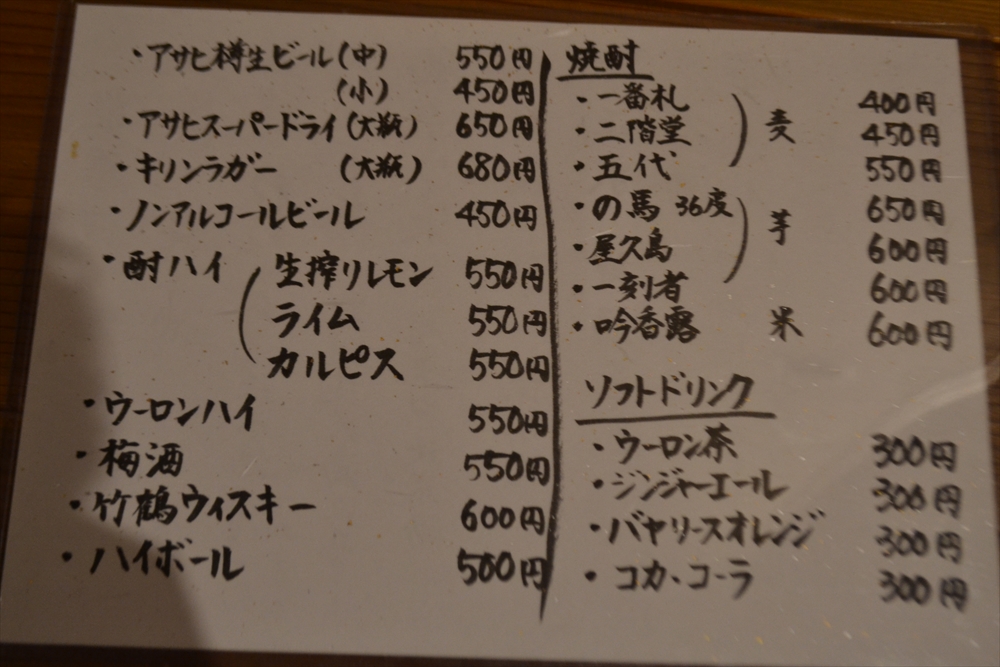 ・アサヒ樽生ビール(中) 550円
(小) 450円
・アサヒスーパードライ(大瓶) 650円
・キリンラガー (大瓶) 680円
・ノンアルコールビール 450円
・酎ハイ 生搾りレモン 550円
ライム 550円
カルピス 550円
・ウーロンハイ 550円
・梅酒 550円
・竹鶴ウィスキー 600円
・ハイボール 500円
焼酎
・一番札 400円
・二階堂 麦 450円
・五代 550円
・の馬 36度 650円
・屋久島 芋 600円
・一刻者 600円
・吟香露 米 600円
ソフトドリンク
・ウーロン茶 300円
・ジンジャーエール 300円
・バヤリースオレンジ 300円
・コカ・コーラ 300円